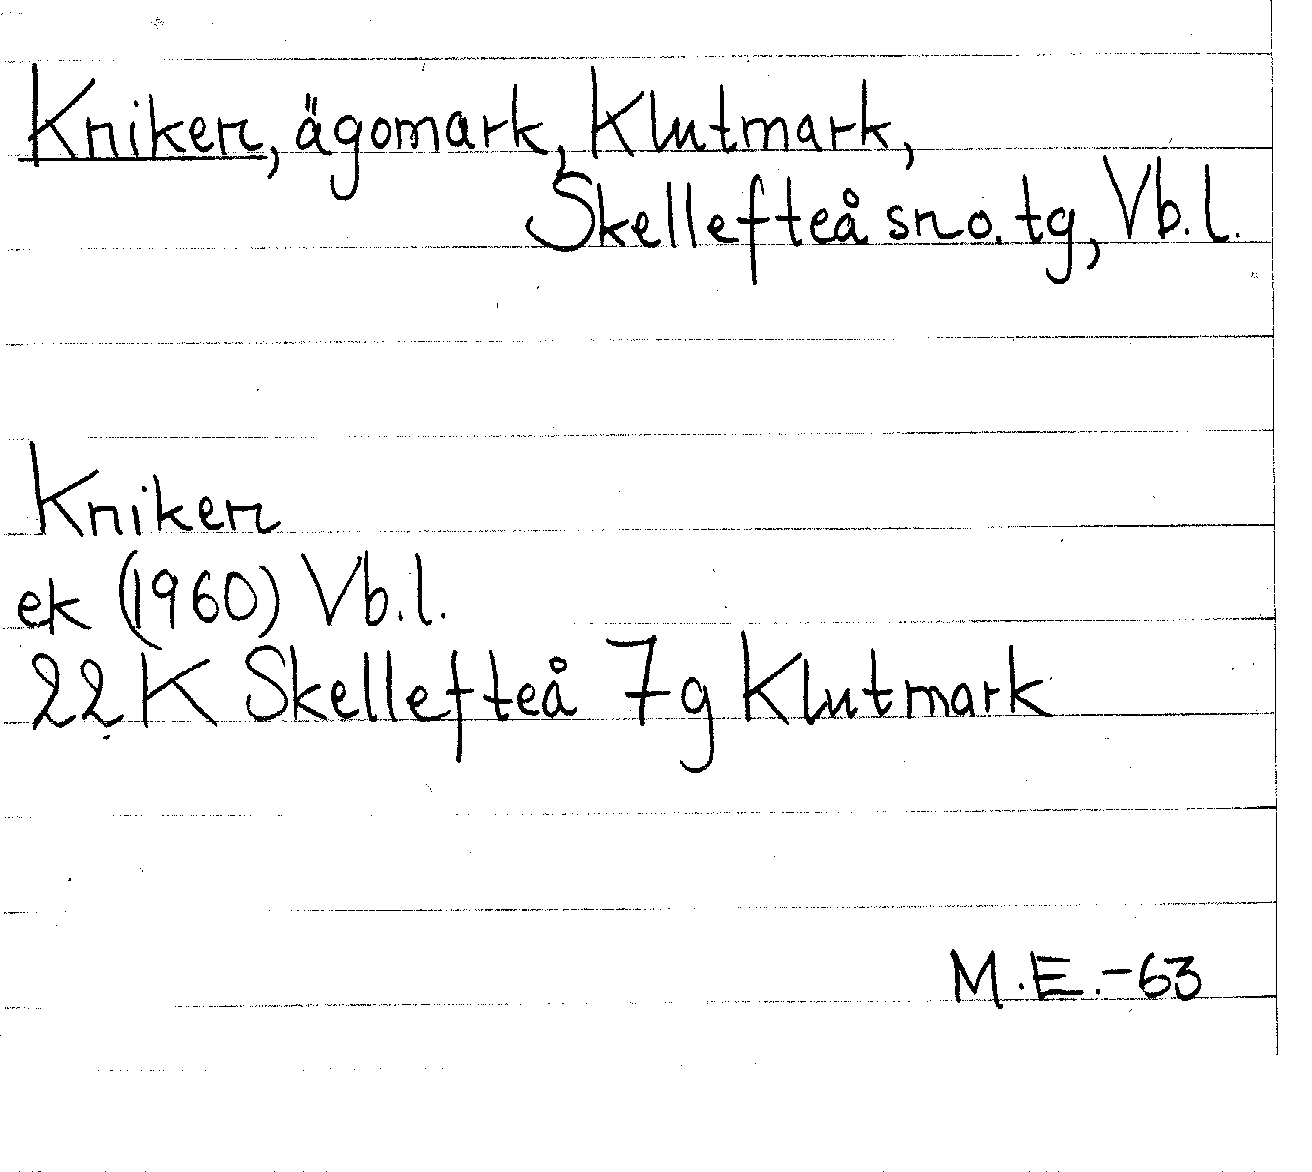 Kniken, ägomark, Klutmark,
Skellefteå sn o. tg, Vb. l.
Kniken
ek (1960) Vb. l.
22 K Skellefteå 7g Klutmark
M.E.-63